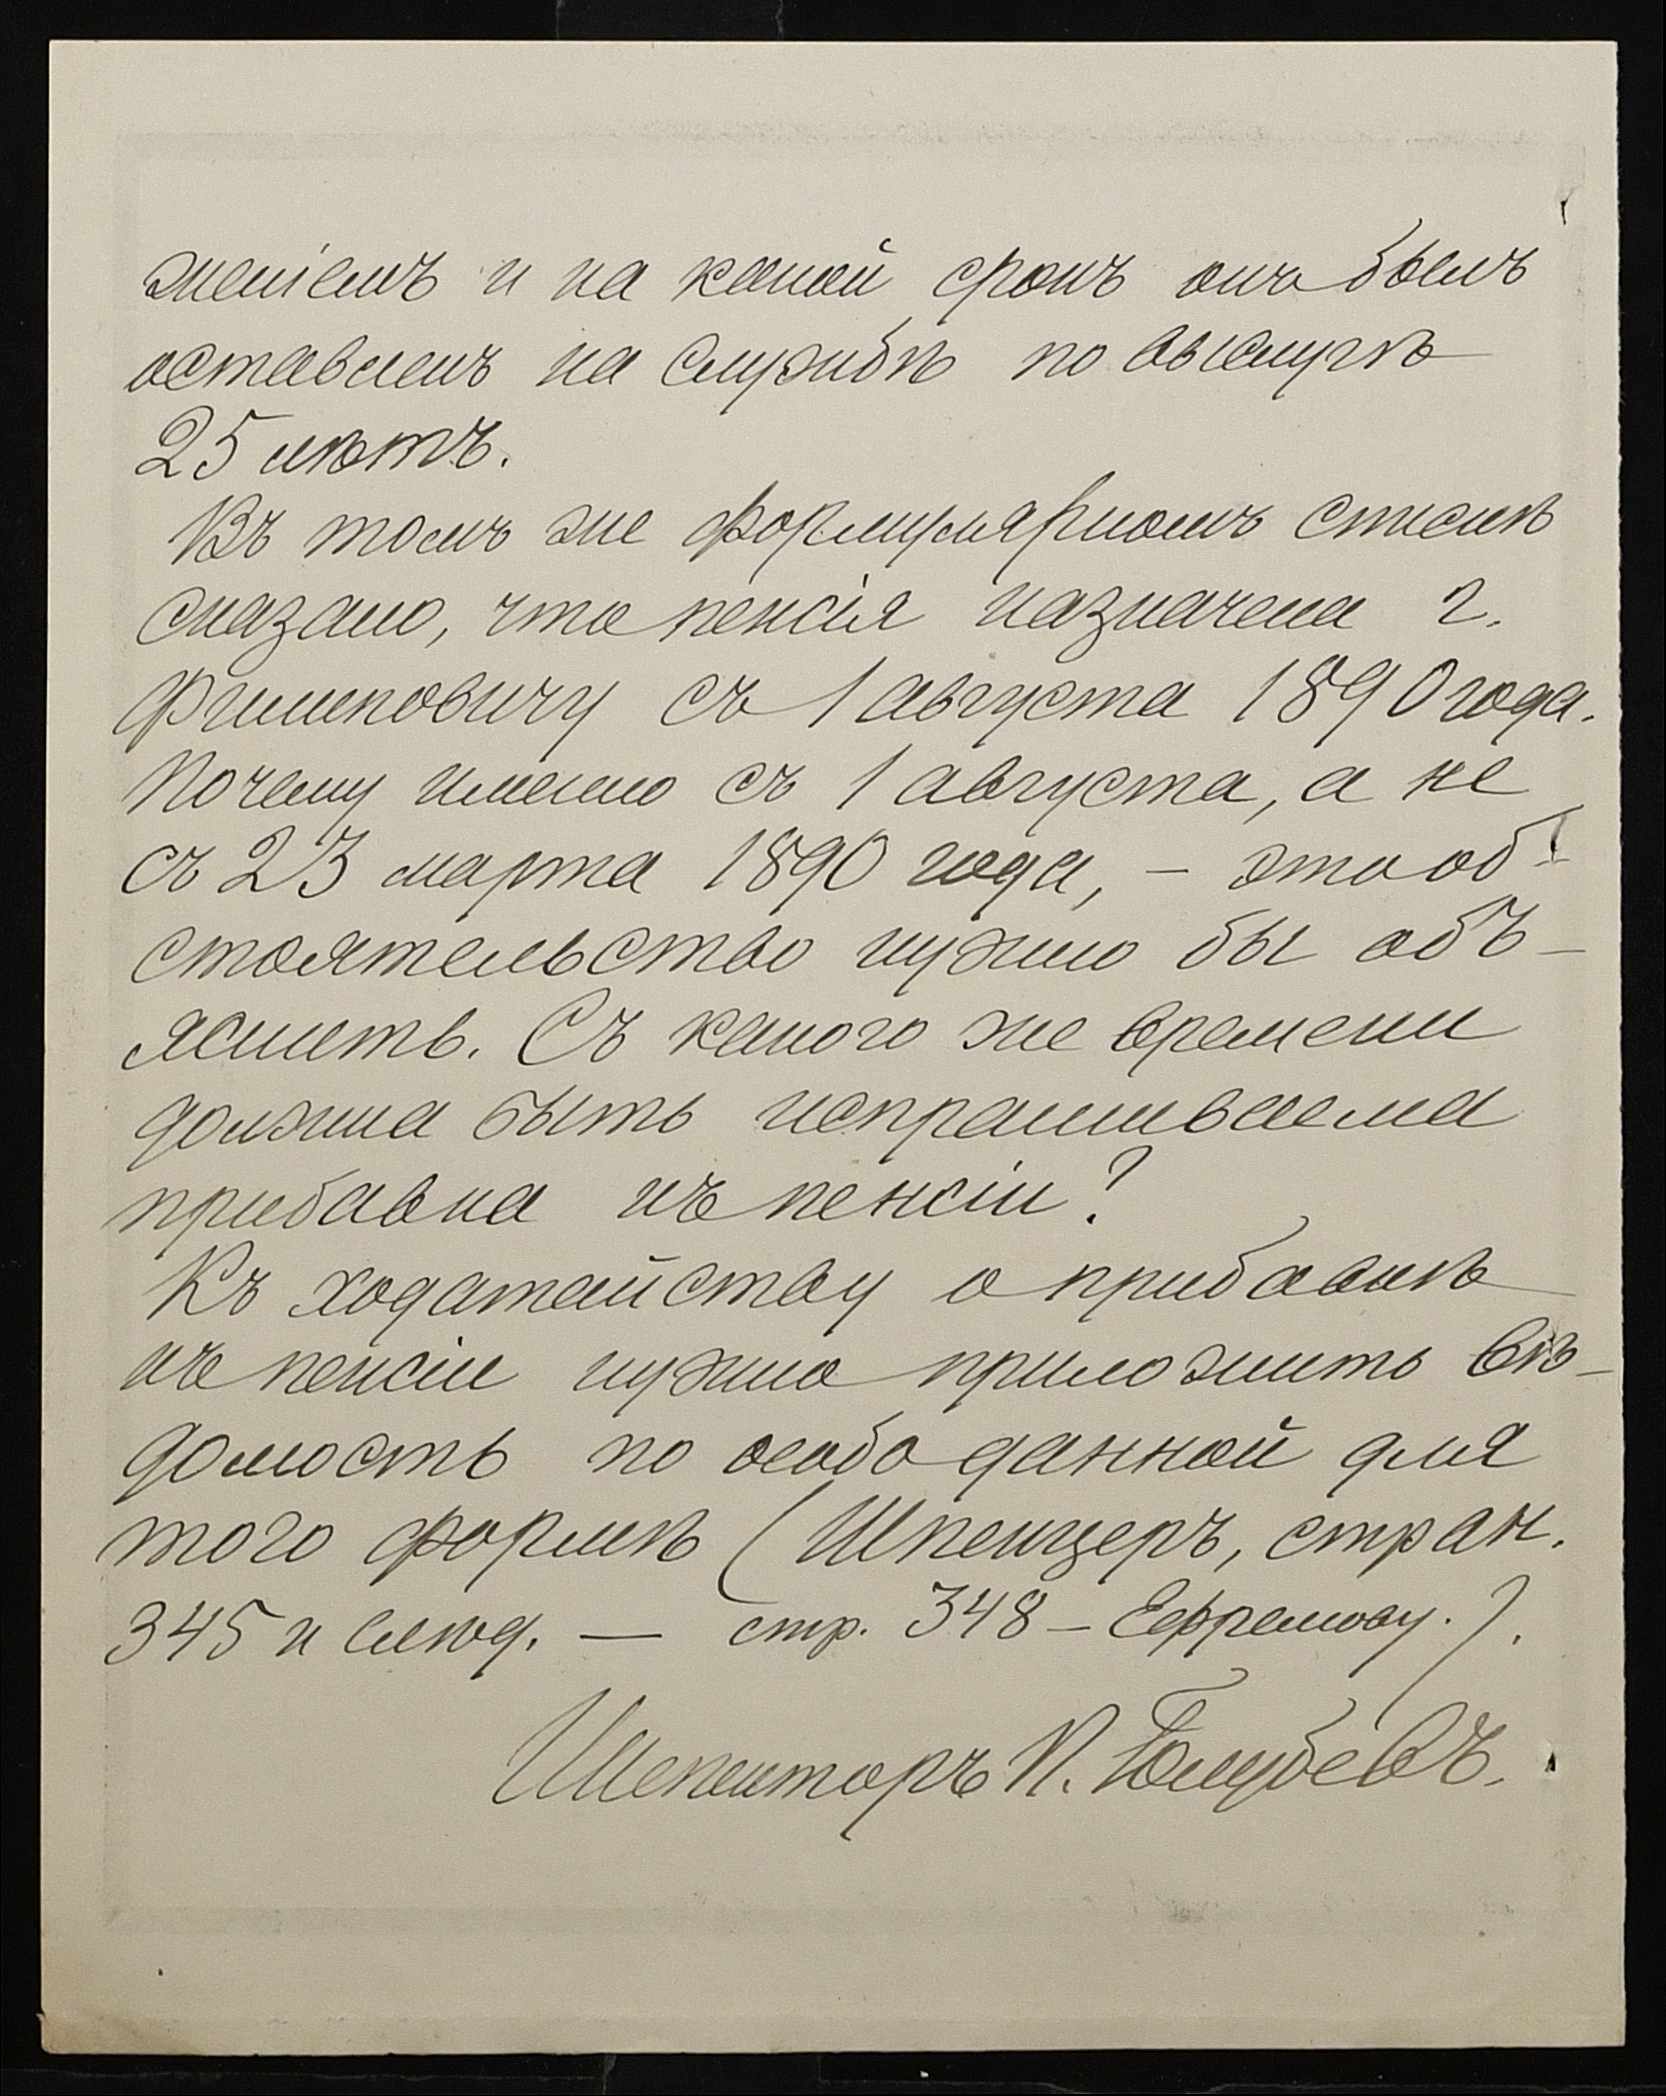 женіемъ и на какой срокъ онъ былъ
оставленъ на службѣ по выслугѣ
25 лѣтъ.
Въ томъ же формулярномъ спискѣ
сказано, что пенсія назначена г.
Филиповичу съ 1 августа 1890 года.
Почему именно съ 1 августа, а не
съ 23 марта 1890 года, – это об-
стоятельство нужно бы объ-
яснить. Съ какого же времени
должна быть испрашиваема
прибавка къ пенсіи?
Къ ходатайству о прибавкѣ
къ пенсіи нужно приложить вѣ-
домость по особо данной для
того формѣ (Шпенцеръ, стран.
345 и слѣд. — стр. 348 – Ефремову.).
Инспекторъ П. Голубевъ.